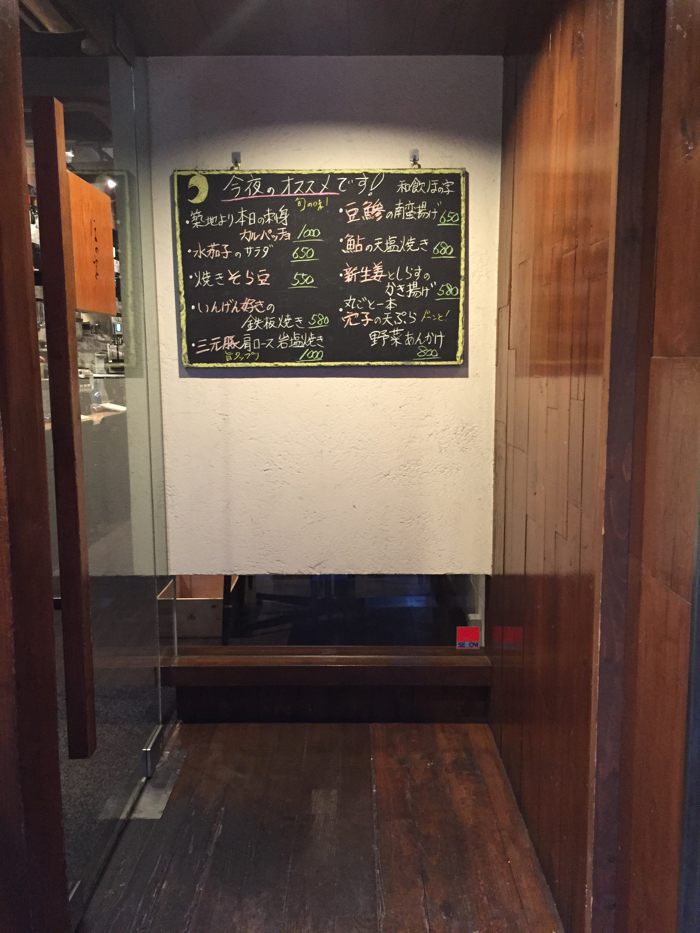 今夜のオススメです!
和飲 ほの字
旬の味!
・築地より本日の刺身
カルパッチョ 1000
・水茄子のサラダ 650
・焼きそら豆 550
・いんげん好きの
鉄板焼き 580
・三元豚肩ロース岩塩焼き
1000
・豆鯵の南蛮揚げ 650
・鮎の天塩焼き 680
・新生姜としらすの
かき揚げ 580
・丸ごと一本
穴子の天ぷら ドーンと!
野菜あんかけ
800
SECOM